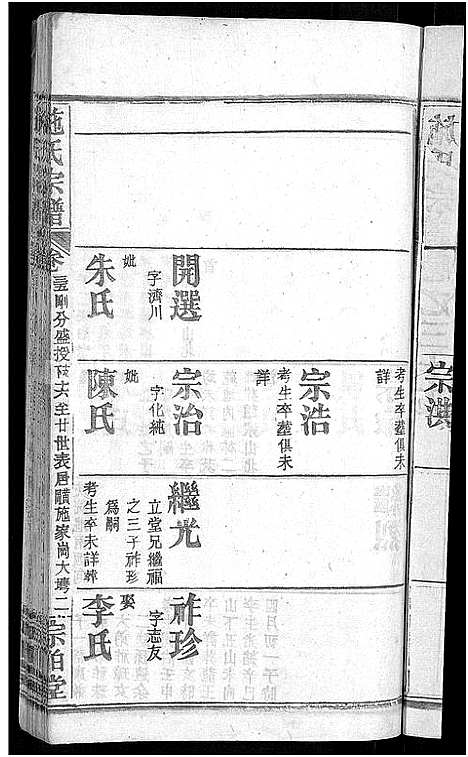 宗洪
考生卒塟俱未
詳
宗浩
考生卒塟俱未
詳
開選
字濟川
妣
朱氏
宗治
字化純
妣
陳氏
繼光
立堂兄繼福
之三子祚珍
為嗣
考生卒未詳葬
祚珍
字志友
娶
李氏
施氏宗譜
卷
世表居
施家崗大塆
宗伯堂